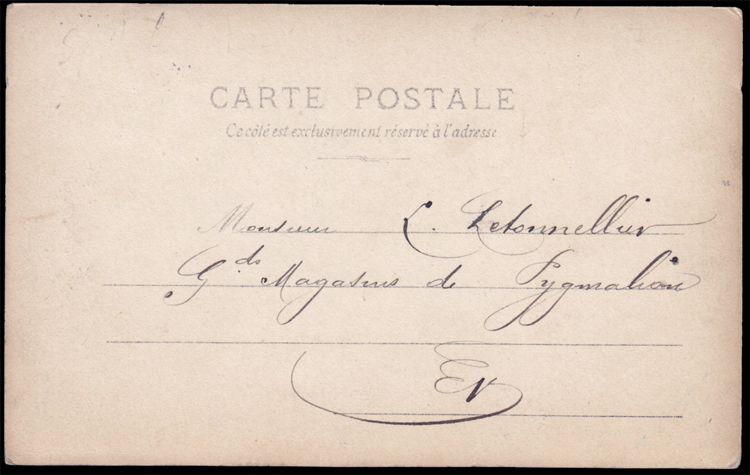 CARTE POSTALE
Ce côté est exclusivement réservé à l'adresse
Monsieur L. Letonnellier
Gds Magasins de Pygmalion
EV